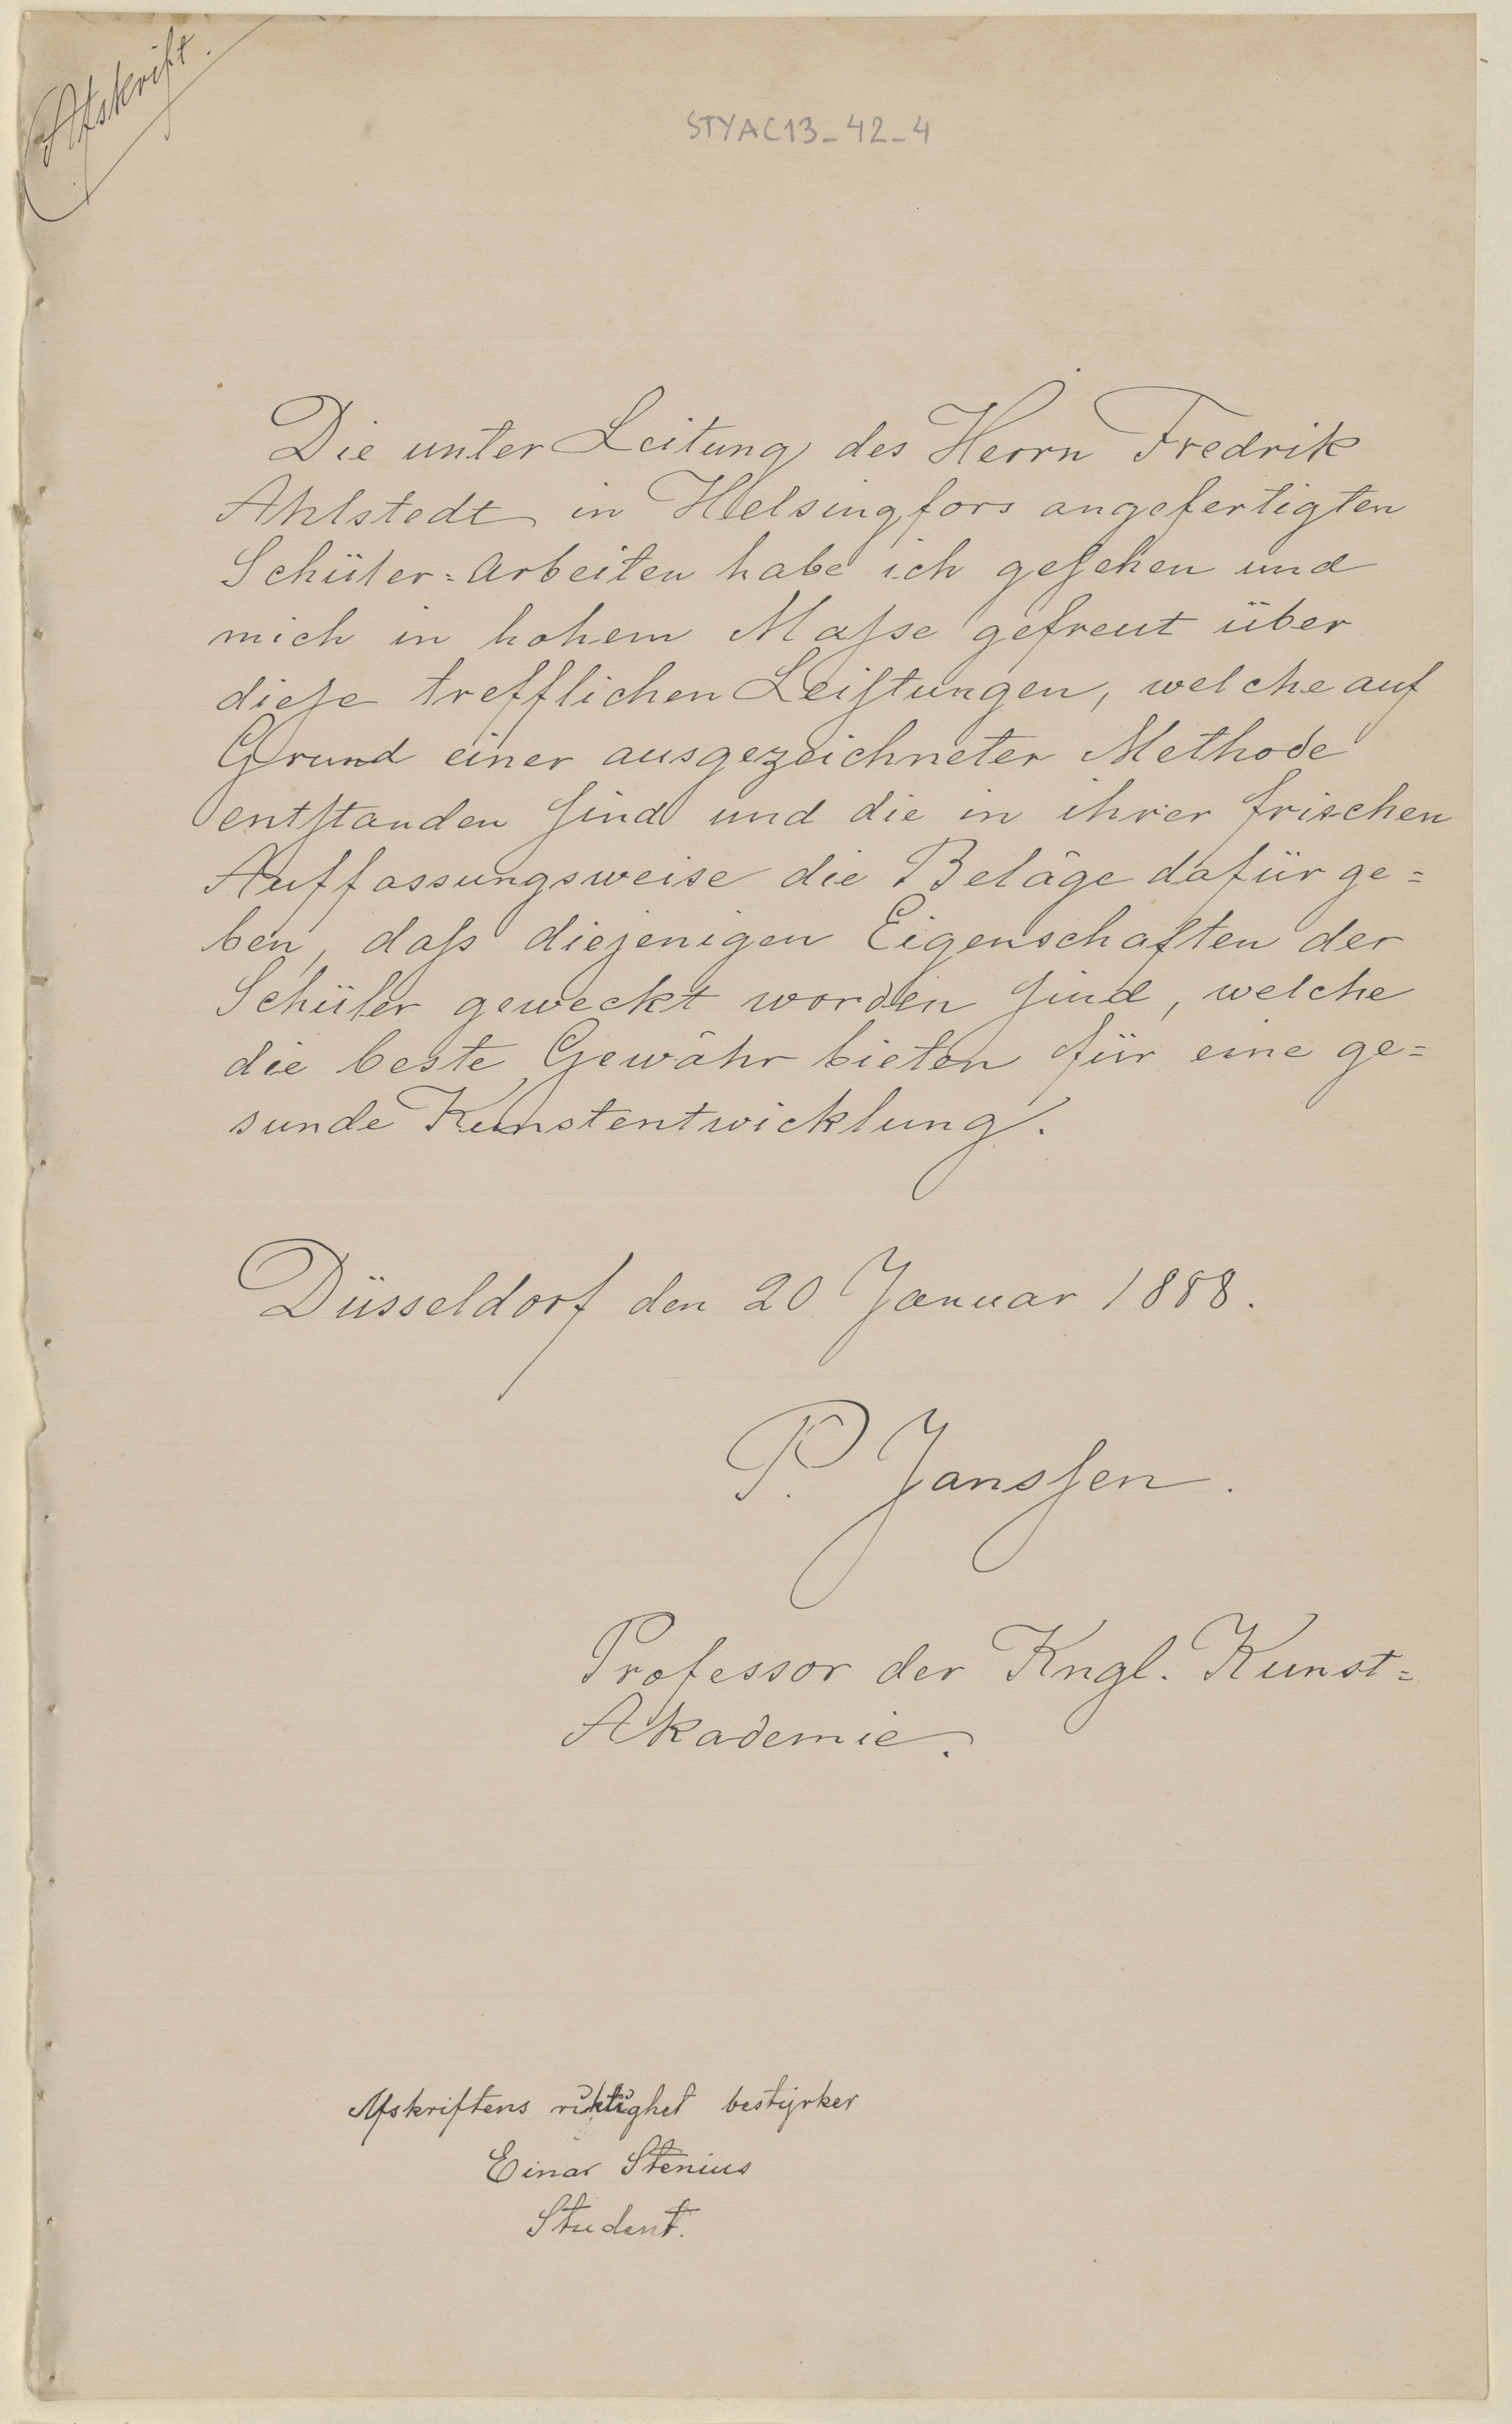 Afskrift.
STYAC13_42_4
Die unter Leitung des Herrn Fredrik
Ahlstedt in Helsingfors angefertigten
Schüler=Arbeiten habe ich geſehen und
mich in hohem Maſse gefreut über
dieſe trefflichen Leiſtungen, welche auf
Grund einer ausgezeichneter Methode
entſtanden ſind und die in ihrer frischen
Auffassungsweise die Beläge dafür ge=
ben, daſs diejenigen Eigenschaften der
Schüler geweckt worden ſind, welche
die beste Gewähr bieten für eine ge=
sunde Kunstentwicklung.
Düsseldorf den 20 Januar 1888.
P. Jansſen.
Professor der Kngl. Kunst=
Akademie.
Afskriftens riktighet bestyrker
Einar Stenius
Student.